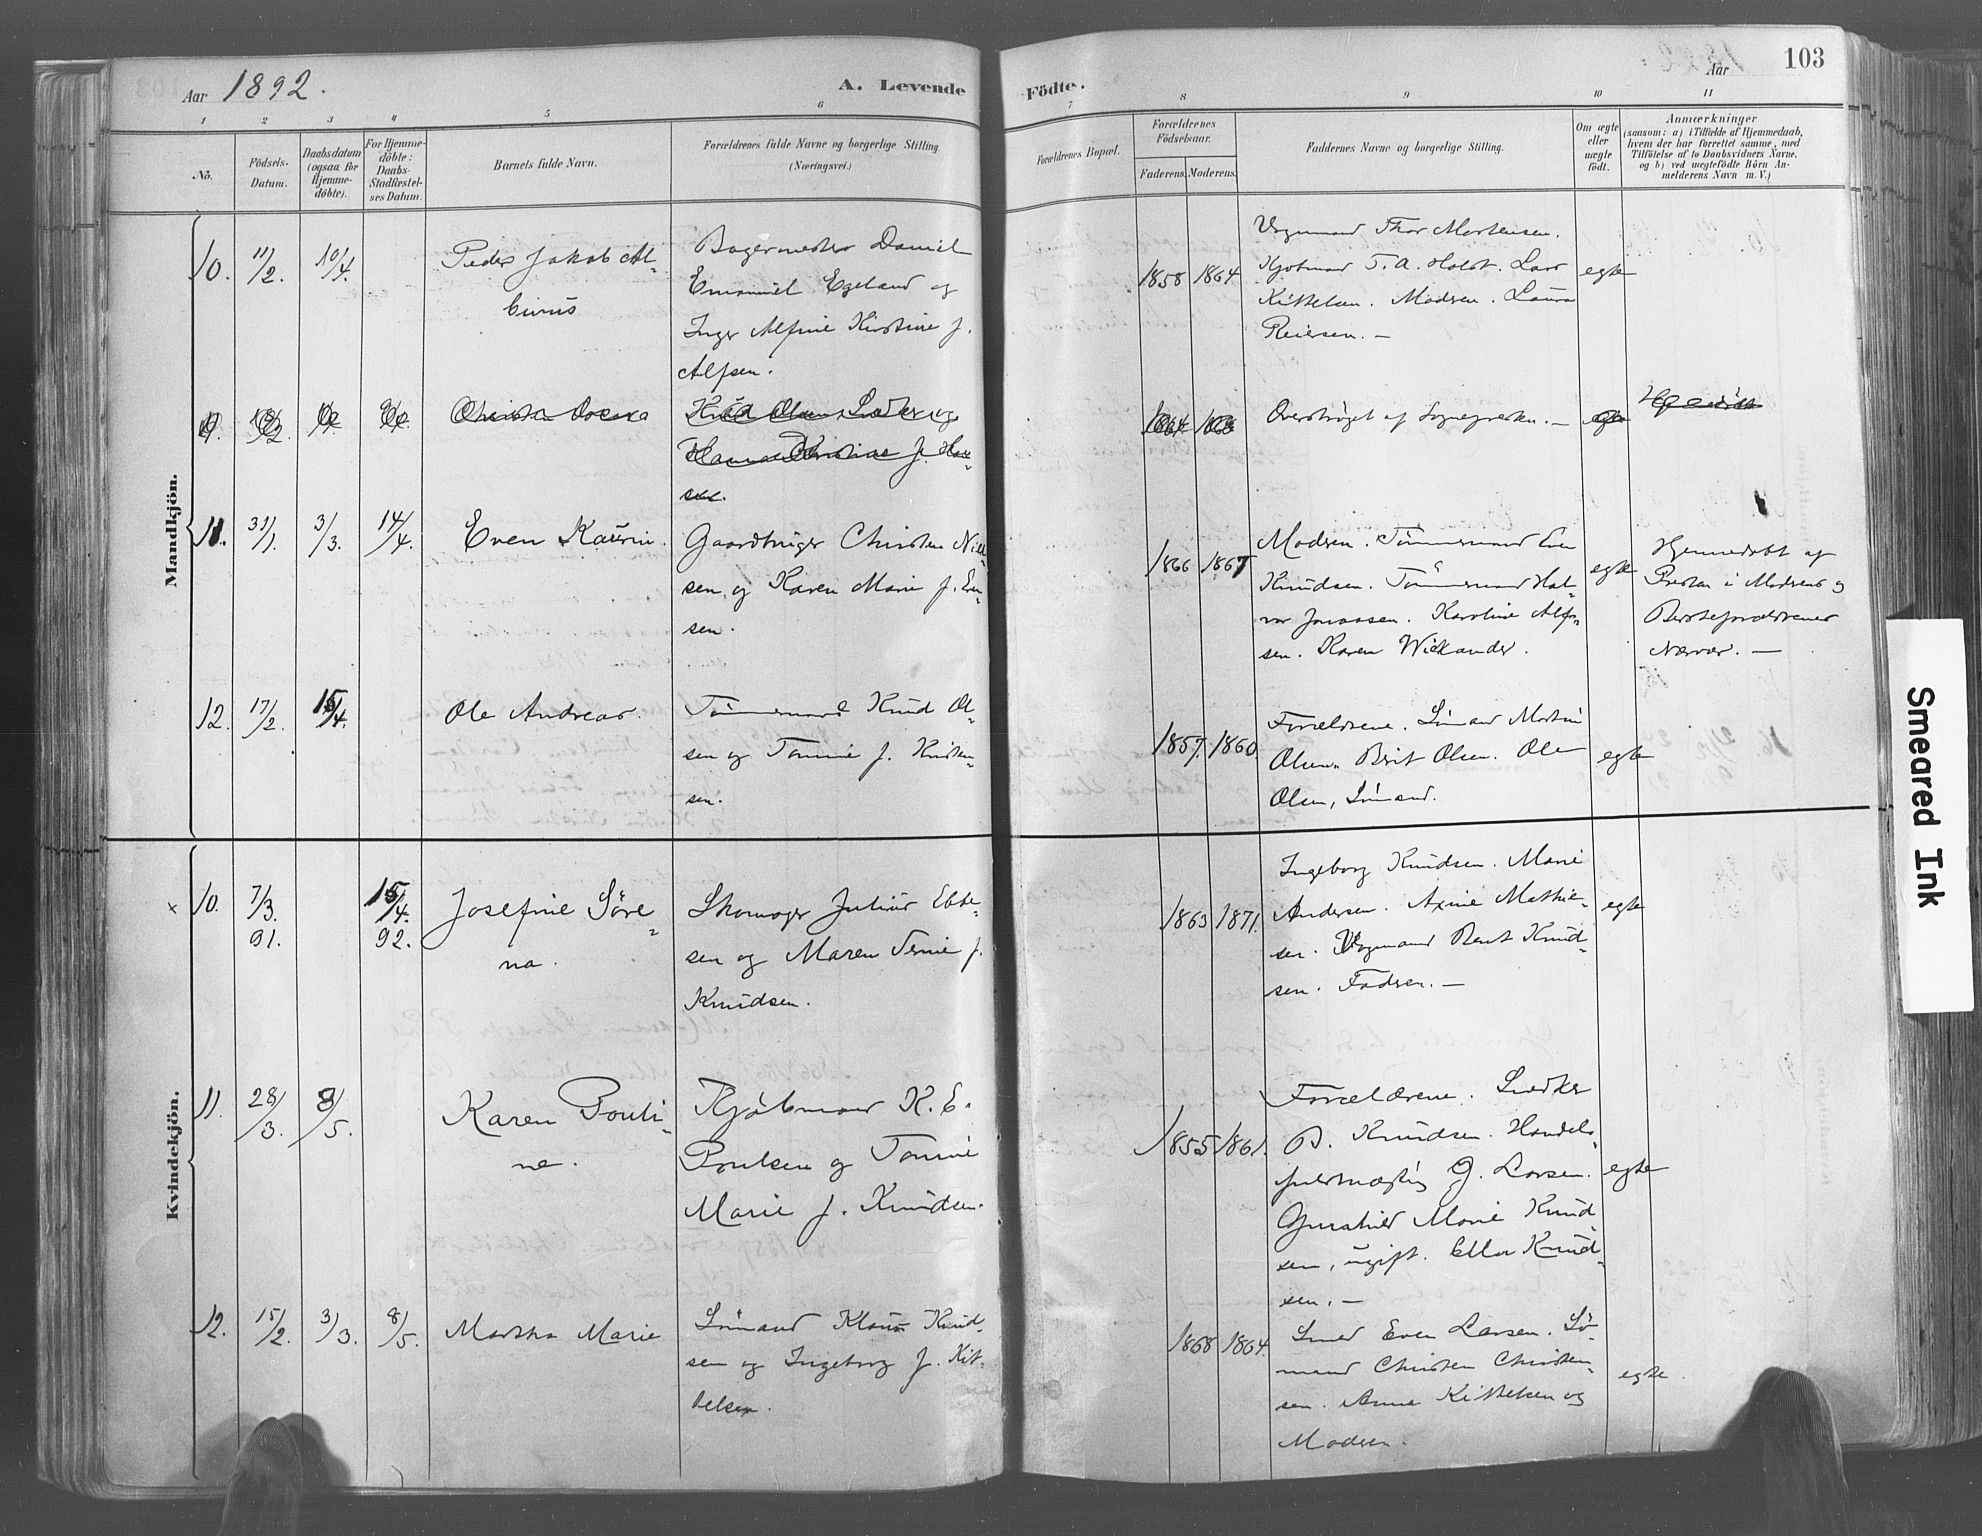 Aar 1892.
A. Levende
Födte.
Aar
103
1 2 3 4 5 6 7 8 9 10 11
No.
Födsels-
Datum.
Daabsdatum
(ogsaa for
Hjemme-
döbte).
For Hjemme-
döbte:
Daabs-
Stadfæstel-
ses Datum.
Barnets fulde Navn.
Forældrenes fulde Navne og borgerlige Stilling
(Næringsvei.)
Forældrenes Bopæl.
Forældrenes
Födselsaar.
Faderens. Moderens.
Faddernes Navne og borgerlige Stilling.
Om ægte
eller
uægte
födt.
Anmærkninger
(saasom: a) i Tilfælde af Hjemmedaab,
hvem der har forrettet samme, med
Tilföielse af to Daabsvidners Navne,
og b) ved uægtefödte Börn An-
melderens Navn m. V.)
Mandkjön.
10. 11/2. 10/4.
Peder Jakob Al-
binus
Bagermester Daniel
Emanuel Egeland og
Inger Alfine Kirstine f.
Alfsen.
1858 1864
Vognmand Thor Mortensen.
Kjøbmand T. A. Holst. Lars
Kittelsen. Modren. Laura
Reiersen. —
egte
Knud Olsen, Snedker og
Hanna Kirstine f. Han-
sen.
1864
Overstrøget af Sognepresten. —
egte
Hjemdøbt
11. 31/1. 3/3. 14/4.
Even Kaurin.
Gaardbruger Christen Niel-
sen og Karen Marie f. Even-
sen.
1866 1867
Modren. Tømmermand Even
Knudsen. Tømmermand Hal-
vor Jonassen. Karoline Alf-
sen. Karen Wickander.
egte
Hjemmedøbt af
Presten i Modrens og
Bedsteforældrenes
Nærvær. —
12. 17/2. 15/4.
Ole Andreas.
Tømmermand Knud Ol-
sen og Tomine f. Kristen-
sen.
1857. 1860.
Forældrene. Sømand Martin
Olsen. Berit Olsen. Ole
Olsen, Sømand.
egte
Kvindekjön.
x 10. 7/3. 91. 15/4. 92.
Josefine Søre-
na.
Skomager Julius Ebbe-
sen og Maren Temie f.
Knudsen.
1863 1871.
Ingeborg Knudsen. Marie
Andersen. Axine Mathie-
sen. Vognmand Bent Knud-
sen. Fadren. —
egte
11. 28/3. 8/5.
Karen Pouli-
ne.
Kjøbmand K. E.
Poulsen og Tomine
Marie f. Knudsen.
1855 1861.
Forældrene. Snedker
B. Knudsen. Handels-
fuldmægtig G. Larsen.
Gunhild Marie Knud-
sen, ugift. Ella Knud-
sen. —
egte
12. 15/2. 3/3. 8/5.
Martha Marie
Sømand Klaus Knud-
sen og Ingeborg f. Kit-
telsen.
1868 1864.
Smed Even Larsen. Sø-
mand Christen Christen-
sen. Anne Kittelsen og
Modren.
egte.
Smeared Ink